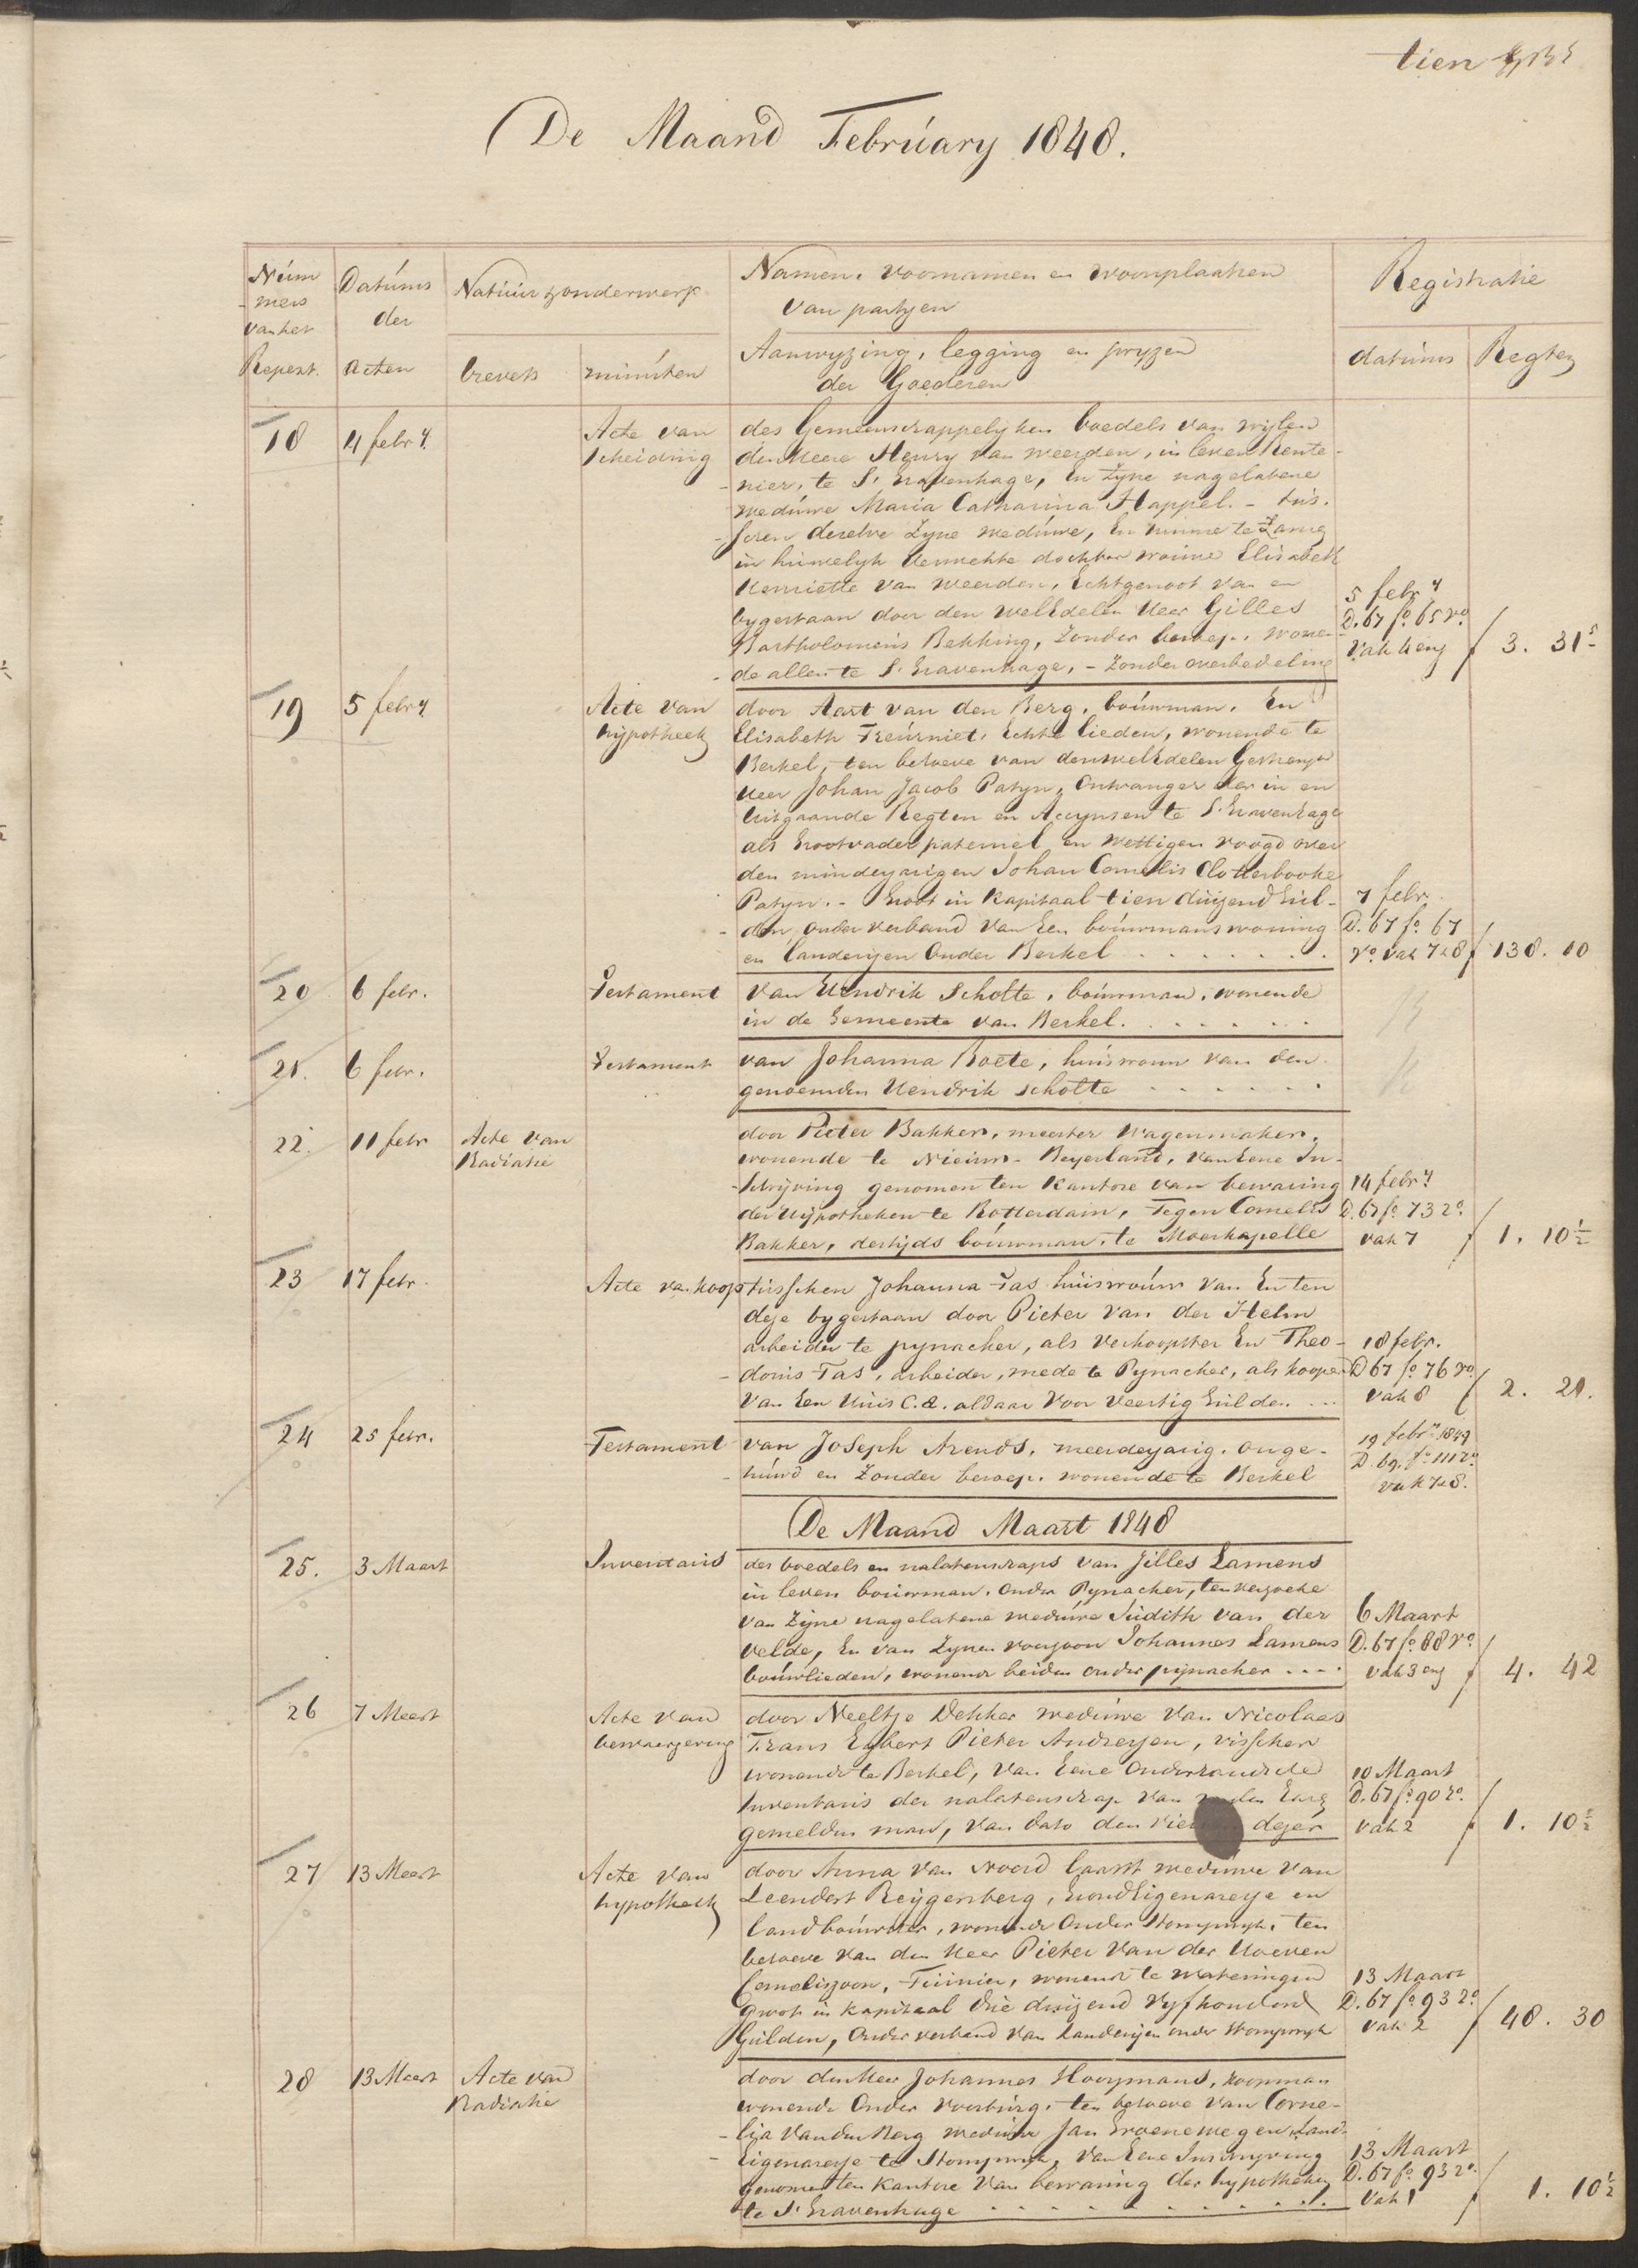 tien
De Maand February 1848.
Num
-mers
van het
Repert.
Datums
der
acten
Natuur & onderwerp
brevets
minuten
Namen, voornamen en woonplaatsen
van partyen
Aanwyzing, legging en pryzen
der Goederen
Registratie
datums
Regten
18
4 febry
Acte van
scheiding
des Gemeenschappelyken boedels van wylen
den Heere Henry van weerden, in leven Rente-
-nier, te S' Gravenhage, en Zyne nagelatene
weduwe Maria Catharina Happel. - tus-
-schen dezelve Zyne weduwe, En hunne te Zamen
in huwelyk verwekte dochter vrouwe Elisabeth
Henriette van weerden, Echtgenoot van en
bygestaan door den welEdelen Heer Gilles
Bartholomeus Bekking, Zonder beroep, wonen-
-de allen te S' Gravenhage, - Zonder overbedeling
5 febry
D. 67 fo. 65 vo.
vak 4 en
3. 31 5
19
5 febry
Acte van
hypotheek
door Aart van den Berg, bouwman, En
Elisabeth Treurniet, Echte lieden, wonende te
Berkel, ten behoeve van den welEdelen Gestrengen
Heer Johan Jacob Patyn, Ontvanger der in en
uitgaande Regten en Accynsen te S' Gravenhage
als Grootvader paterneel en Wettigen voogd over
den minderjarigen Johan Cornelis Clotterbooke
Patyn. - Groot in Kapitaal tien duizend Gul-
-den, onder verband van Een bouwmanswoning
en landeryen Onder Berkel . . . . . . .
7 febr.
D. 67 fo. 67
vo. vak 7 & 8
138. 10
20
6 febr.
Testament
van Hendrik Scholte, bouwman, wonende
in de Gemeente van Berkel. . . . . . .
21.
6 febr.
Testament
van Johanna Boete, huisvrouw van den
genoemden Hendrik Scholte . . . . . .
22.
11 febr
Acte van
Radiatie
door Pieter Bakker, meester Wagenmaker,
wonende te Nieuw-Beyerland, van Eene In-
-schryving genomen ten Kantore van bewaring
der Hypotheken te Rotterdam, Tegen Cornelis
Bakker, destyds bouwman, te Moerkapelle
14 febry
D. 67 fo. 73 ro.
vak 7
1. 10 1/2
23
17 febr.
Acte van koop
tusschen Johanna Tas huisvrouw van En ten
deze bygestaan door Pieter van der Helm
arbeider te pynacker, als Verkoopster En Theo-
-dorus Tas, arbeider, mede te Pynacker, als kooper
Van Een Huis C.A. aldaar Voor Veertig Gulden ...
18 febr.
D 67 fo 76 vo
vak 8
2. 21.
24
25 febr.
Testament
van Joseph Arends, meerderjarig, onge-
-huwd en Zonder beroep, wonende te Berkel
19 febry 1849
D. 69. fo. 111 ro.
vak 7 & 8.
De Maand Maart 1848
25.
3 Maart
Inventaris
des boedels en nalatenschaps van Jilles Lamens
in leven bouwman, onder Pynacker, ten verzoeke
van Zyne nagelatene weduwe Judith van der
Velde, En van Zynen voorzoon Johannes Lamens
bouwlieden, wonende beiden onder pynacker ....
6 Maart
D. 67 fo. 88 vo
vak 3 en
4. 42
26
7 Maart
Acte van
door Neeltje Dekker weduwe van Nicolaas
Frans Egbert Pieter Andreyen, visscher
wonende te Berkel, van Eene Onderhandsche
Inventaris der nalatenschap van
gemelden man, van dato den dezer
10 Maart
D. 67 fo. 90 ro.
vak 2
1. 10 1/2
27
13 Maart
Acte van
hypotheek
door Anna van Noord laatst weduwe van
Leendert Reygersberg, Grond Eigenaresse en
landbouwster, wonende Onder Stompwyk, ten
behoeve van den Heer Pieter van der Hoeven
Corneliszoon, Tuinier, wonende te Wateringen
Groot in Kapitaal drie duizend Vyfhonderd
Gulden, Onder verband van Landeryen onder Stompwyk
13 Maart
D. 67 fo. 93 ro
vak 2
48. 30
28
13 Maart
Acte van
Radiatie
door den Heer Johannes Hooymans, koopman
wonende Onder Voorburg, ten behoeve van Corne-
-lia van den Berg weduwe Jan Groenewegen, Land-
-Eigenaresse te Stompwyk, van Eene Inschryving
genomen ten Kantore Van bewaring der hypotheken
te S' Gravenhage . . . . . . . . .
13 Maart
D. 67 fo. 93 ro.
vak 1
1. 10 1/2